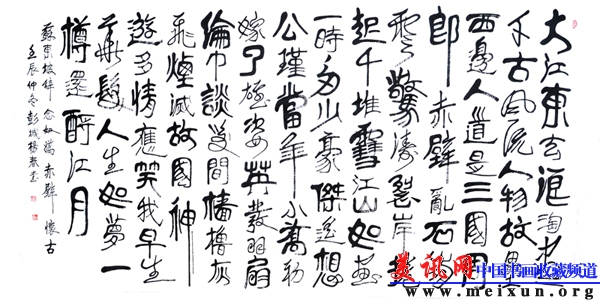 大江東去浪淘盡
千古風流人物故壘
西邊人道是三國周
郎赤壁亂石崩
雲驚濤裂岸捲
起千堆雪江山如畫
一時多少豪傑遙想
公瑾當年小喬初
嫁了雄姿英發羽扇
綸巾談笑間檣櫓灰
飛煙滅故國神
遊多情應笑我早生
華髮人生如夢一
樽還酹江月
蘇東坡詞念奴嬌赤壁懷古
壬辰仲冬彭城楊春
美讯网 中国书画收藏频道
www.meixun.org